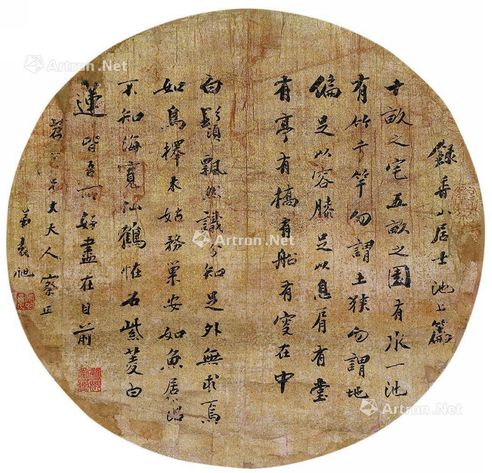 錄香山居士池上篇
十畝之宅五畝之園有水一池
有竹千竿勿謂土狹勿謂地
偏足以容膝足以息肩有堂
有亭有橋有船有叟在中
白鬚飄然識分知足外無求焉
如鳥擇木姑務巢安如魚居沼
不知海寬鶴恠石紫菱白
蓮皆吾所好盡在目前
丈大人察正
弟袁旭
Artron.Net
Artron.Net
Artron.Net
Artron.Net
Artron.Net